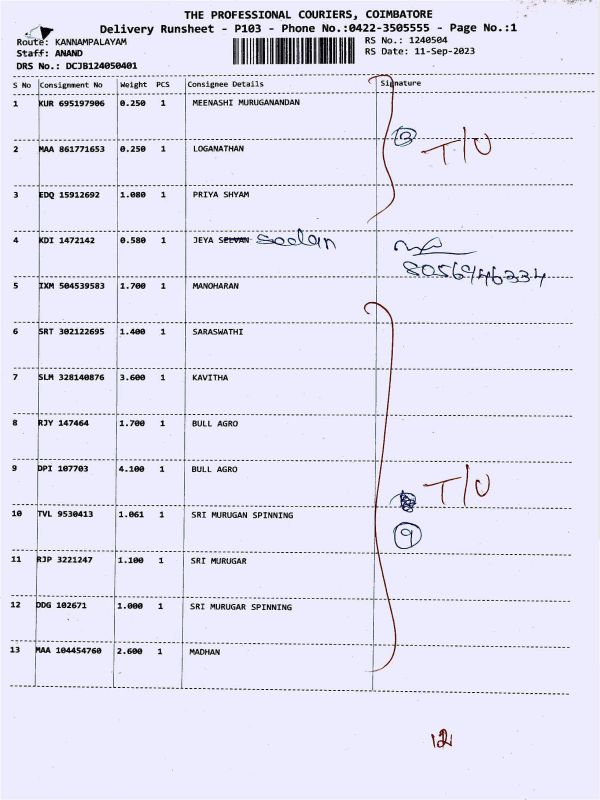 THE PROFESSIONAL COURIERS, COIMBATORE
Delivery Runsheet - P103 - Phone No.:0422-3505555 - Page No.:1
Route: KANNAMPALAYAM
RS No.: 1240504
Staff: ANAND
RS Date: 11-Sep-2023
DRS No.: DCJB124050401
S No Consignment No Weight PCS Consignee Details Signature
1 KUR 695197906 0.250 1 MEENASHI MURUGANANDAN
3 T/U
2 MAA 861771653 0.250 1 LOGANATHAN
3 EDQ 15912692 1.080 1 PRIYA SHYAM
4 KDI 1472142 0.580 1 JEYA SELVAN Seelan
8056946334
5 IXM 504539583 1.700 1 MANOHARAN
6 SRT 302122695 1.400 1 SARASWATHI
7 SLM 328140876 3.600 1 KAVITHA
8 RJY 147464 1.700 1 BULL AGRO
9 DPI 107703 4.100 1 BULL AGRO
T/U
10 TVL 9530413 1.061 1 SRI MURUGAN SPINNING
9
11 RJP 3221247 1.100 1 SRI MURUGAR
12 DDG 102671 1.000 1 SRI MURUGAR SPINNING
13 MAA 104454760 2.600 1 MADHAN
12